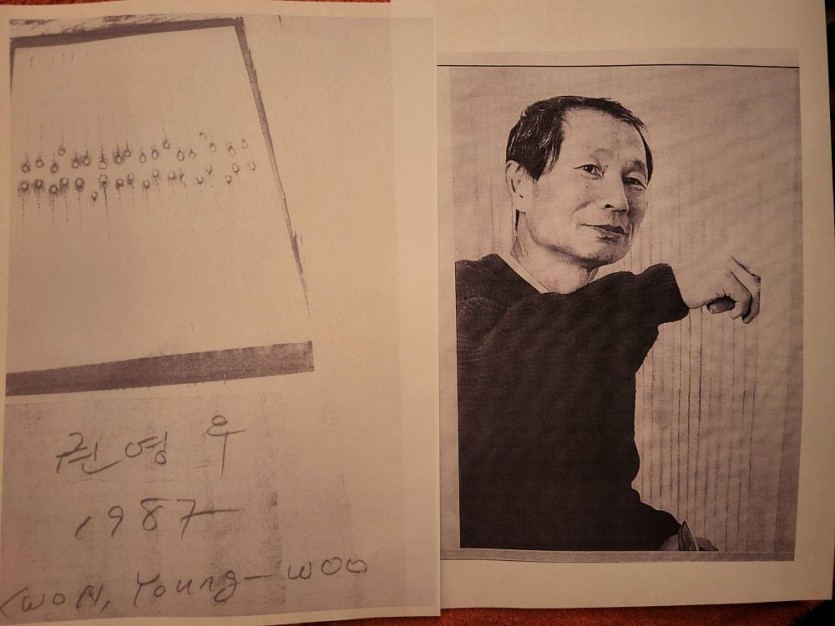 권영우
1987
KWON, Young-woo